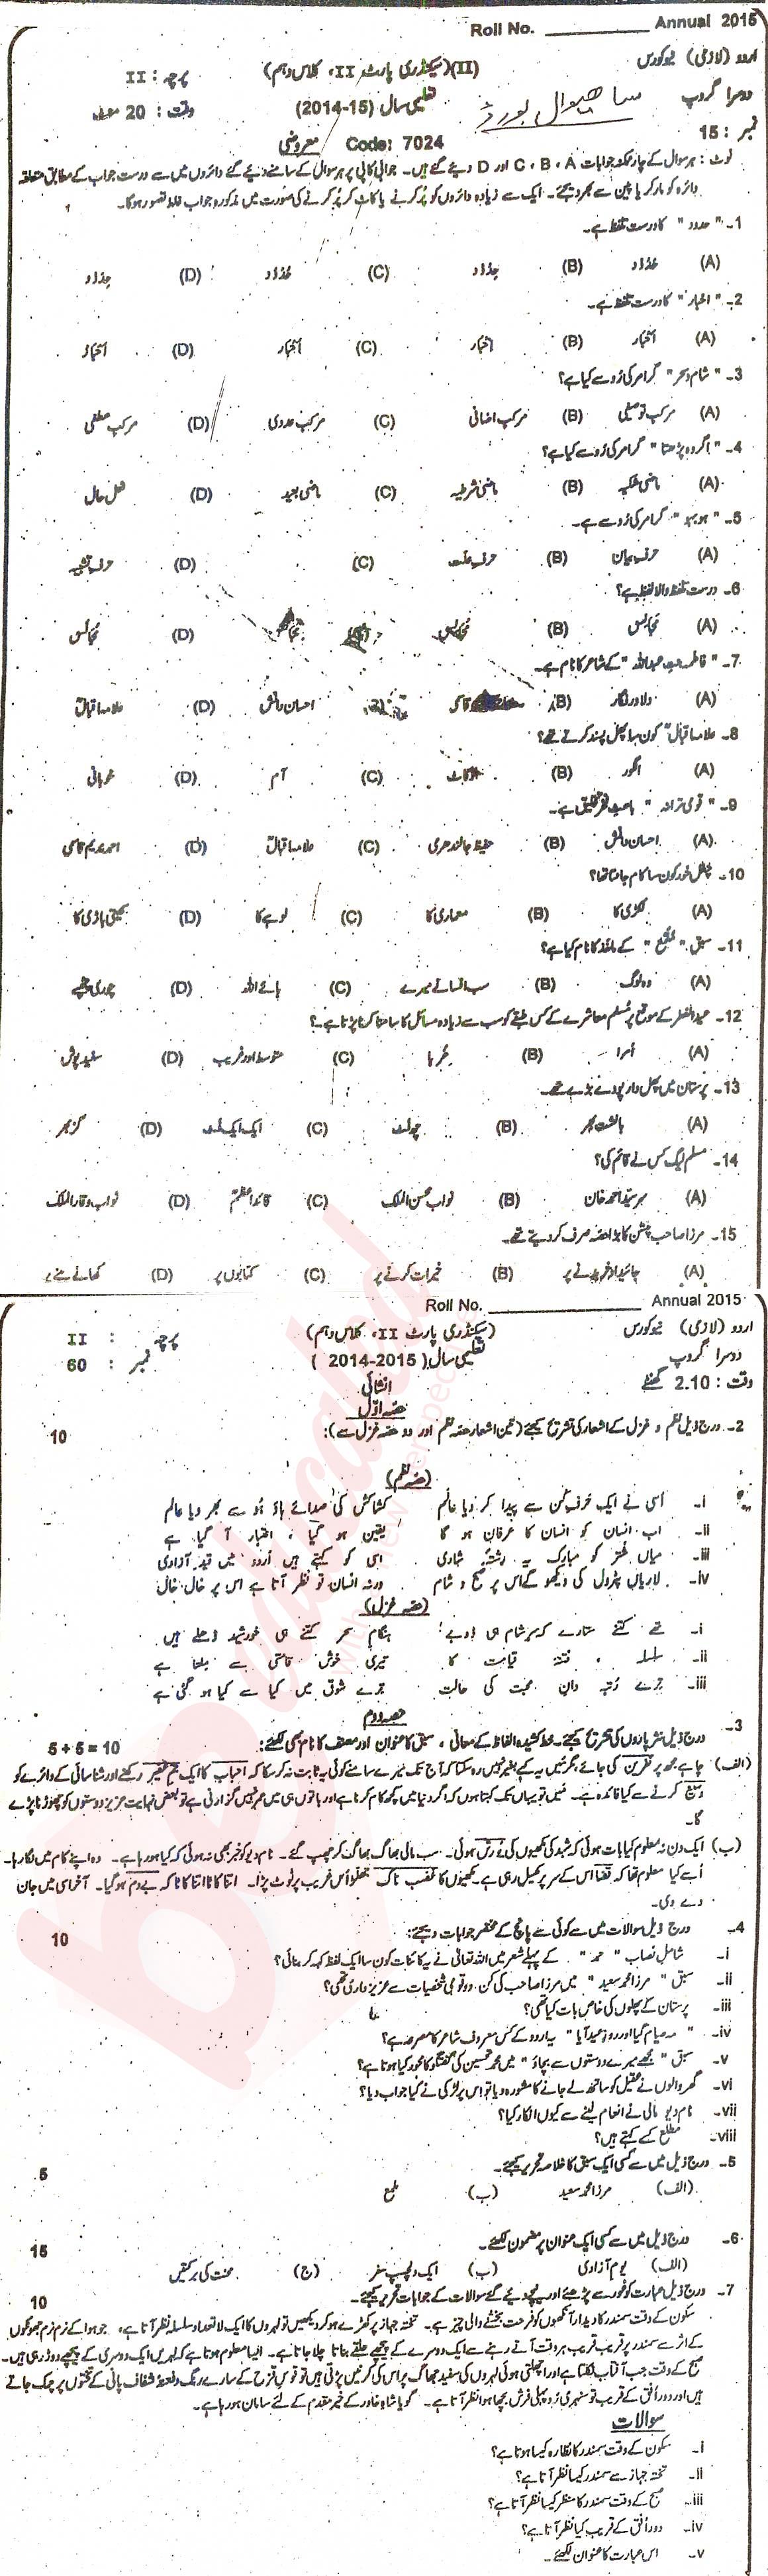 Roll No. ____________ Annual 2015
اردو (لازمی) نیوکورس
(II)(سیکنڈری پارٹ II، کلاس دہم)
پرچہ : II
دوسرا گروپ
ساہیوال بورڈ
تعلیمی سال (15-2014)
وقت : 20 منٹ
نمبر : 15
Code: 7024 معروضی
نوٹ : ہر سوال کے چار ممکنہ جوابات C ، B ، A اور D دیے گئے ہیں۔ جوابی کاپی پر ہر سوال کے سامنے دیے گئے دائروں میں سے درست جواب کے مطابق متعلقہ
دائرہ کو مارکر یا پین سے بھر دیجئے۔ ایک سے زیادہ دائروں کو پُر کرنے یا کاٹ کر پُر کرنے کی صورت میں مذکورہ جواب غلط تصور ہوگا۔
1۔ کا درست تلفظ ہے۔
(A) (B) (C) (D)
2۔ " اخبار " کا درست تلفظ ہے۔
(A) (B) (C) (D)
3۔ " شام و سحر " گرامر کی رُو سے کیا ہے؟
(A) مرکب توصیفی (B) مرکب اضافی (C) مرکب عددی (D) مرکب عطفی
4۔ " اگر وہ پڑھتا " گرامر کی رُو سے کیا ہے؟
(A) ماضی شکیہ (B) ماضی شرطیہ (C) ماضی بعید (D) فعل حال
5۔ " ہو بہو " گرامر کی رُو سے ہے۔
(A) حرف بیان (B) حرف علت (C) (D) حرف تشبیہ
6۔ درست تلفظ والا لفظ ہے؟
(A) (B) (C) (D)
7۔ " فاطمہ بنت عبداللہ " کے شاعر کا نام ہے۔
(A) دلاور فگار (B) قاسمی (C) احسان دانش (D) علامہ اقبالؒ
8۔ علامہ اقبالؒ کون سا پھل پسند کرتے تھے؟
(A) انگور (B) (C) آم (D) خوبانی
9۔ " قومی ترانہ " باعثِ فخر تخلیق ہے۔
(A) احسان دانش (B) حفیظ جالندھری (C) علامہ اقبالؒ (D) احمد ندیم قاسمی
10۔ چغل خور کون سا کام جانتا تھا؟
(A) لکڑی کا (B) معماری کا (C) لوہے کا (D) کھیتی باڑی کا
11۔ سبق " ملمع " کے ماخذ کا نام کیا ہے؟
(A) وہ لوگ (B) سب افسانے میرے (C) ہائے اللہ (D) چوری چھپے
12۔ عید الفطر کے موقع پر مُسلم معاشرے کے کس طبقے کو سب سے زیادہ مسائل کا سامنا کرنا پڑتا ہے۔؟
(A) اُمرا (B) غُربا (C) متوسط اور غریب (D) سفید پوش
13۔ پرستان میں پھل دار پودے بڑے تھے۔
(A) بالشت بھر (B) چھ فٹ (C) ایک ایک فٹ (D) گز بھر
14۔ مسلم لیگ کس نے قائم کی؟
(A) سر سید احمد خان (B) نواب محسن الملک (C) قائد اعظمؒ (D) نواب وقار الملک
15۔ مرزا صاحب پنشن کا بڑا حصہ صرف کر دیتے تھے۔
(A) جائیداد خریدنے پر (B) خیرات کرنے پر (C) کتابوں پر (D) کھانے پینے پر
Roll No. ____________ Annual 2015
اردو (لازمی) نیوکورس
(سیکنڈری پارٹ II، کلاس دہم)
پرچہ : II
دوسرا گروپ
تعلیمی سال ( 2014-2015 )
نمبر : 60
وقت : 2.10 گھنٹے
انشائی
حصہ اوّل
2۔ درج ذیل نظم و غزل کے اشعار کی تشریح کیجئے (تین اشعار حصہ نظم اور دو حصہ غزل سے): 10
(حصہ نظم)
i۔ اُسی نے ایک حرفِ کُن سے پیدا کر دیا عالم کشاکش کی صدائے ہاؤ ہُو سے بھر دیا عالم
ii۔ اب انسان کو انسان کا عرفان ہو گا یقین ہو گیا ، اعتبار آ گیا ہے
iii۔ میاں شوہر کو مبارک یہ رشتۂ شادی اسی کو کہتے ہیں اُردو میں قید آزادی
iv۔ لاریاں پٹرول کی دیکھو گے اس پر صبح و شام ورنہ انسان تو نظر آتا ہے اس پر خال خال
(حصہ غزل)
i۔ تھے کتنے ستارے کہ سرِ شام ہی ڈوبے ہنگامِ سحر کتنے ہی خورشید ڈھلے ہیں
ii۔ سلسلہ فتنۂ قیامت کا تیری خوش قامتی سے ملتا ہے
iii۔ ترے رُتبہ دانِ محبت کی حالت ترے شوق میں کیا سے کیا ہو گئی ہے
حصہ دوم
3۔ درج ذیل نثر پاروں کی تشریح کیجئے۔ خط کشیدہ الفاظ کے معانی ، سبق کا عنوان اور مصنف کا نام بھی لکھئے: 5 + 5 = 10
(الف) چاہے مجھ پر نفرین کی جائے، مگر میں یہ کہے بغیر نہیں رہ سکتا کہ آج تک میرے سامنے کوئی یہ ثابت نہ کر سکا کہ احباب کا ایک جم غفیر رکھنے اور شناسائی کے دائرے کو
وسیع کرنے سے کیا فائدہ ہے۔ میں تو یہاں تک کہتا ہوں کہ اگر دنیا میں کچھ کام کرنا ہے اور باتوں ہی میں عمر نہیں گزارنی ہے تو بعض نہایت عزیز دوستوں کو چھوڑنا پڑے
گا۔
(ب) ایک دن نہ معلوم کیا بات ہوئی کہ شہد کی مکھیوں کی یورش ہوئی۔ سب مالی بھاگ بھاگ کر چھپ گئے۔ نام دیو کو خبر بھی نہ ہوئی کہ کیا ہو رہا ہے۔ وہ اپنے کام میں لگا رہا۔
اُسے کیا معلوم تھا کہ قضا اس کے سر پر کھیل رہی ہے۔ مکھیوں کا غضب ناک جھلڑ اُس غریب پر ٹوٹ پڑا۔ اتنا کاٹا اتنا کاٹا کہ بے دم ہو گیا۔ آخر اسی میں جان
دے دی۔
4۔ درج ذیل سوالات میں سے کوئی سے پانچ کے مختصر جوابات دیجئے: 10
i۔ شامل نصاب " حمد " کے پہلے شعر میں اللہ تعالیٰ نے یہ کائنات کون سا ایک لفظ کہہ کر بنائی؟
ii۔ سبق " مرزا محمد سعید " میں مرزا صاحب کی کن دو قومی شخصیات سے عزیز داری تھی؟
iii۔ پرستان کے پھلوں کی خاص بات کیا تھی؟
iv۔ " مہِ صیام گیا اور روزِ عید آیا " یہ اردو کے کس معروف شاعر کا مصرعہ ہے؟
v۔ سبق " مجھے میرے دوستوں سے بچاؤ " میں محمد تحسین کی گفتگو کا محور کیا ہوتا ہے؟
vi۔ گھر والوں نے عقیل کو ساتھ لے جانے کا مشورہ دیا تو اس پر لڑکی نے کیا جواب دیا؟
vii۔ نام دیو مالی نے انعام لینے سے کیوں انکار کیا؟
viii۔ مطلع کسے کہتے ہیں؟
5۔ درج ذیل میں سے کسی ایک سبق کا خلاصہ تحریر کیجئے۔ 5
(الف) مرزا محمد سعید (ب) ملمع
6۔ درج ذیل میں سے کسی ایک عنوان پر مضمون لکھئے۔ 15
(الف) یوم آزادی (ب) ایک دلچسپ سفر (ج) محنت کی برکتیں
7۔ درج ذیل عبارت کو غور سے پڑھئے اور نیچے دیے گئے سوالات کے جوابات تحریر کیجئے۔ 10
سکون کے وقت سمندر کا دیدار آنکھوں کو فرحت بخشنے والی چیز ہے۔ تختہ جہاز پر کھڑے ہو کر دیکھیں تو لہروں کا ایک لا تعداد سلسلہ نظر آتا ہے، جو ہوا کے نرم نرم جھونکوں
کے اثر سے سمندر پر قریب قریب ہر وقت آتے رہنے سے ایک دوسرے کے پیچھے حلقے بناتا چلا جاتا ہے۔ ایسا معلوم ہوتا ہے کہ لہریں ایک دوسری کے پیچھے دوڑ رہی ہیں۔
صبح کے وقت جب آفتاب نکلتا ہے اور اچھلتی ہوئی لہروں کی سفید جھاگ پر اس کی کرنیں پڑتی ہیں تو قوس قزح کے سارے رنگ شفاف پانی کے تختوں پر چمک جاتے
ہیں اور دور اُفق کے قریب تو سنہری رُوپہلی فرش بچھا ہوا نظر آتا ہے۔ گویا شاہِ خاور کے خیر مقدم کے لئے سامان ہو رہا ہے۔
سوالات
i۔ سکون کے وقت سمندر کا نظارہ کیسا ہوتا ہے؟
ii۔ تختہ جہاز سے سمندر کیسا نظر آتا ہے؟
iii۔ صبح کے وقت سمندر کا منظر کیسا نظر آتا ہے؟
iv۔ دور اُفق کے قریب کیا نظر آتا ہے؟
v۔ اس عبارت کا عنوان لکھئے۔